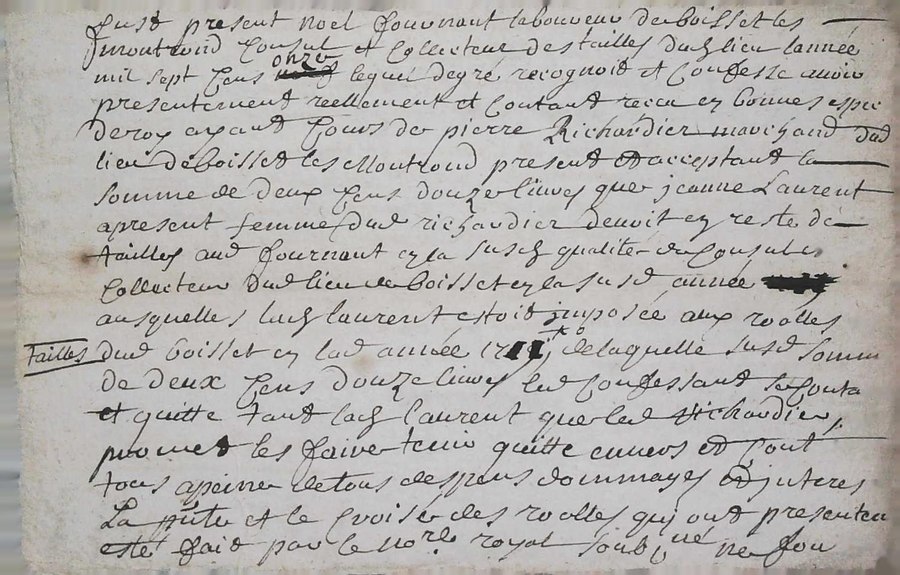 fust present noel fournant laboureur de boisset les
montrond consul et collecteur des tailles dud lieu lannée
mil sept cens onze lequel de gré recognoit et confesse avoir
presentement reellement et contant receu en bonnes espe
de roy ayant cours de pierre Richardier marchand dud
lieu de boisset les Montrond present et acceptant la
somme de deux cens douze livres que jeanne Laurent
apresent femme dud richardier devoit en reste de
tailles aud fournant en la susd qualité de Consul et
Collecteur dud lieu de boisset en la susd année
ausquelles lad laurent estoit imposée aux roolles
tailles dud boisset en lad année 1711 de laquelle susd somm
de deux cens douze livres led confessant se conta
et quitte tant lad laurent que led Richardier
promet les faire tenir quitte envers et cont
tous a peine de tous despens dommages et interes
La pnte et le croise des roolles qui ont presentem
esté fait par le no.re royal soub.né ne fon